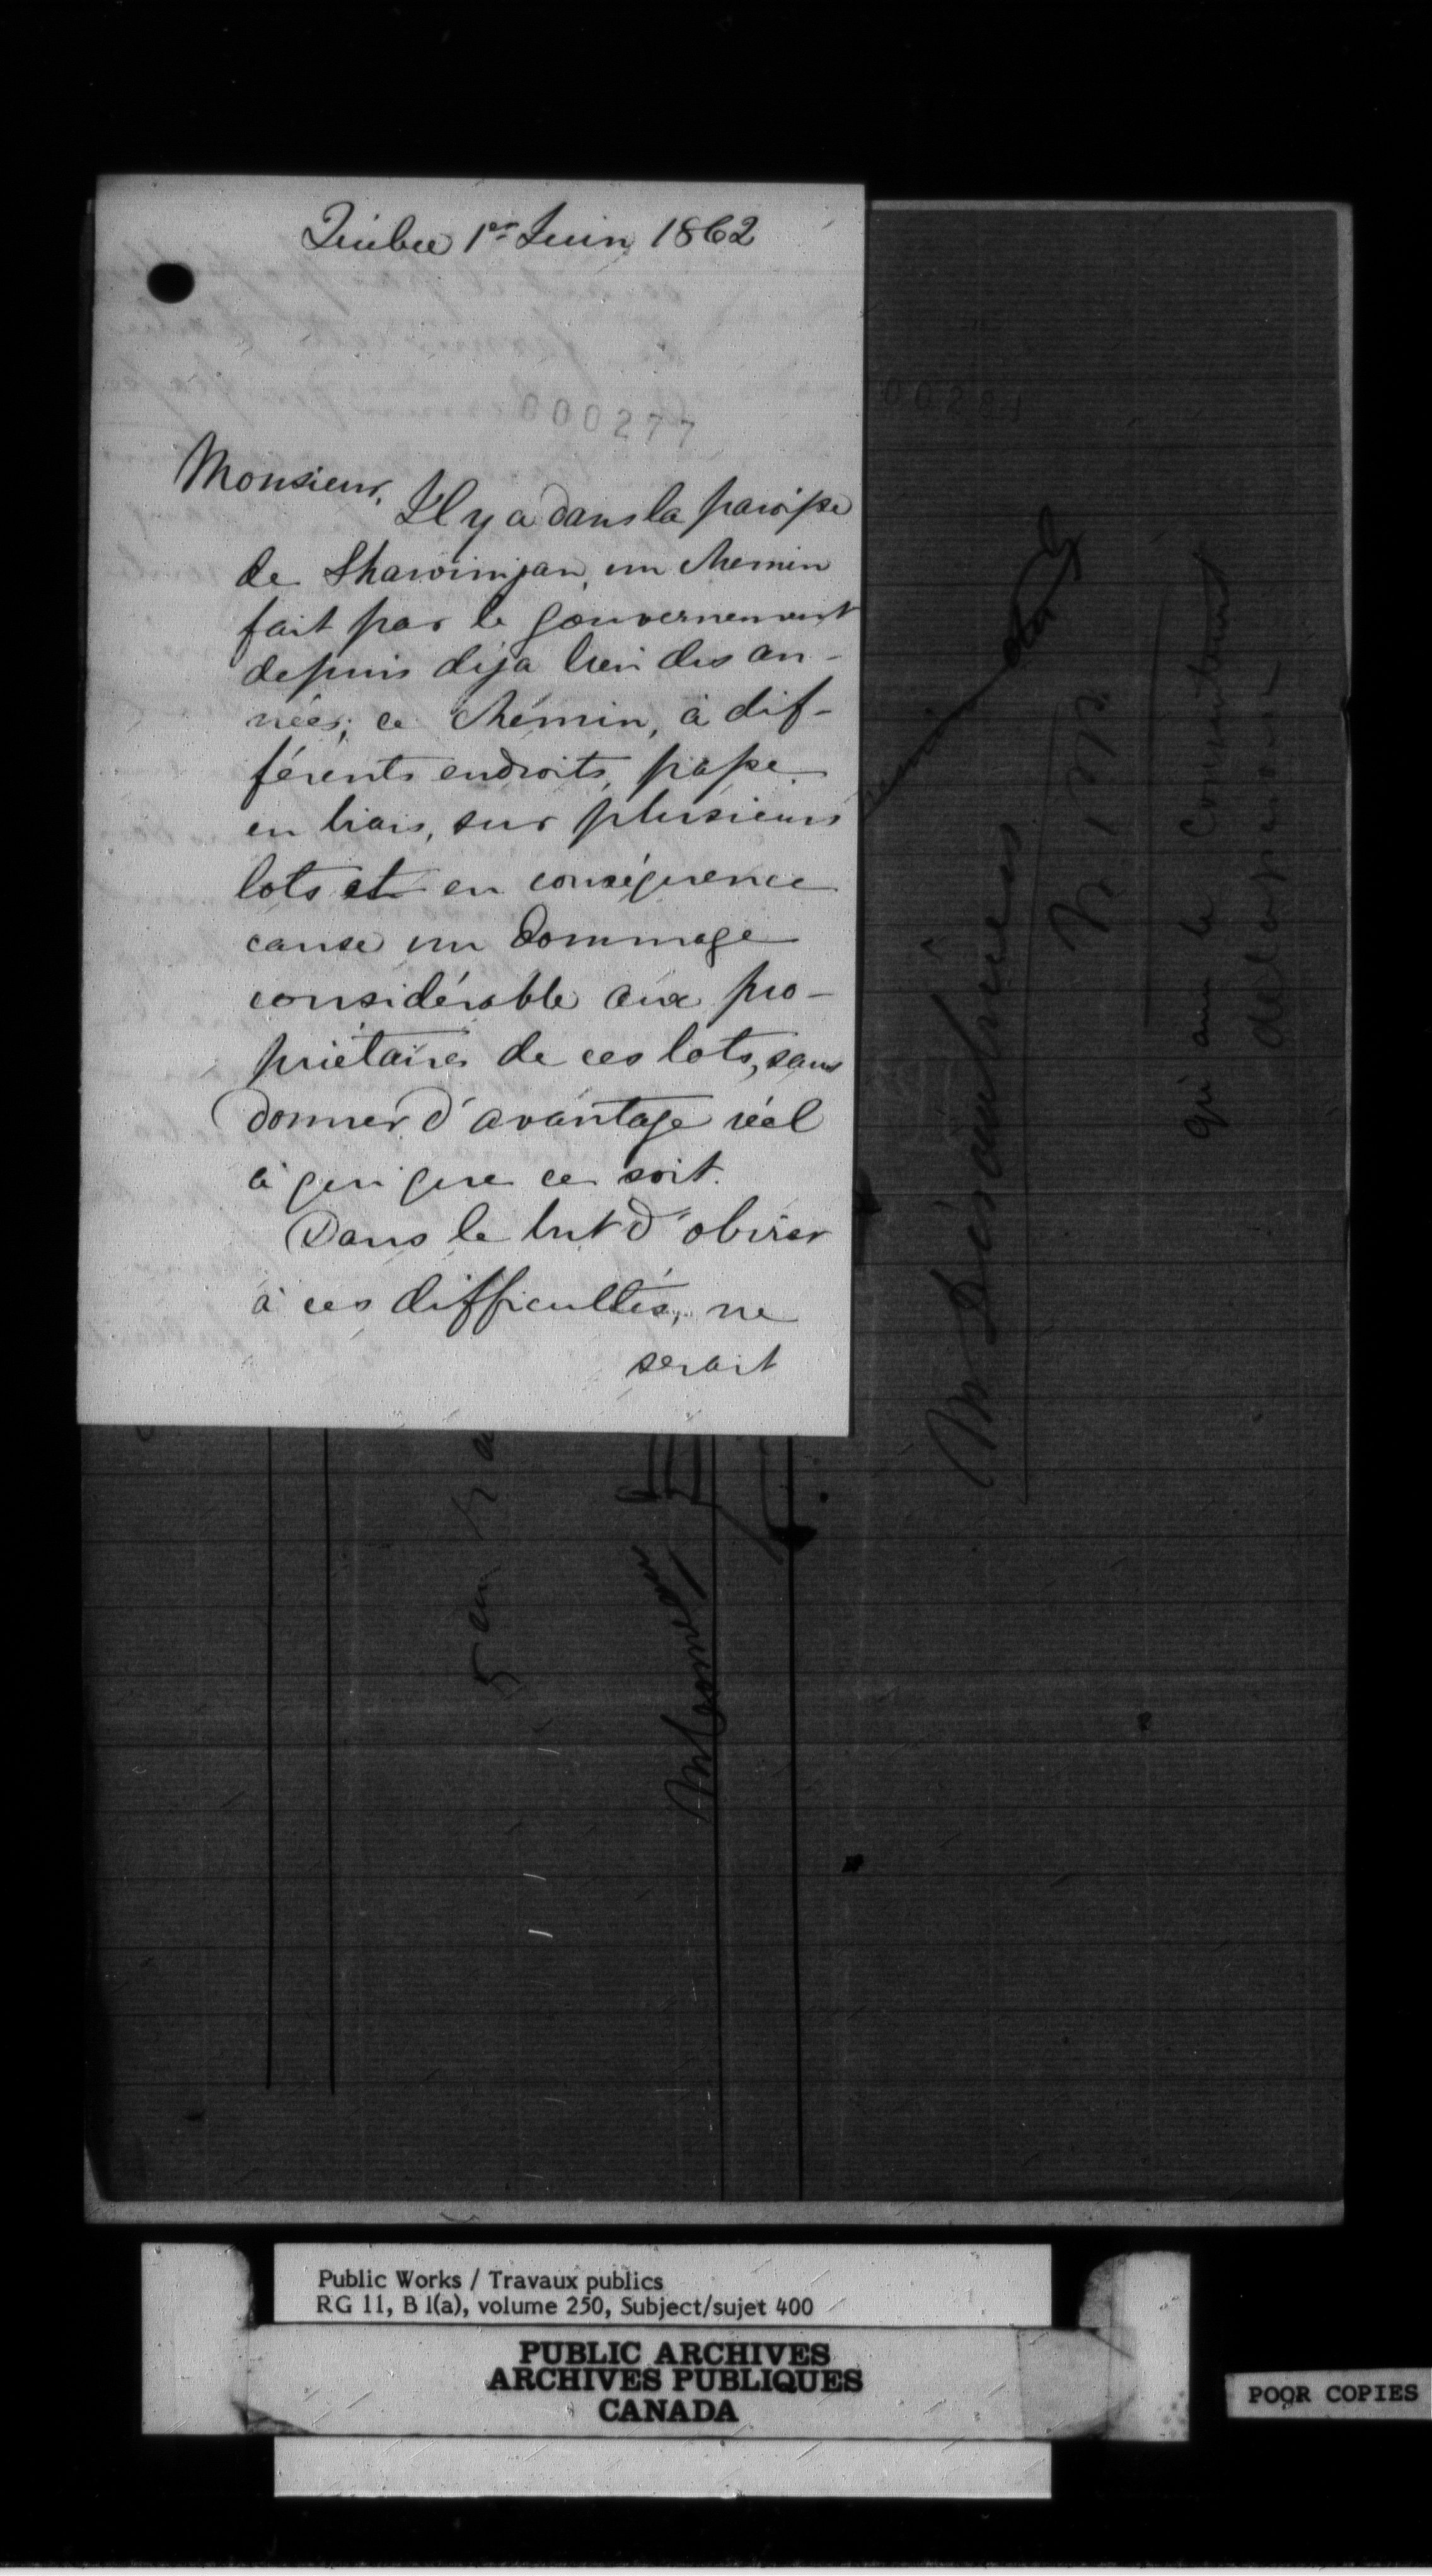 Québec 1er Juin 1862
000277
Monsieur,
Il y a dans la paroisse
de Shawinigan, un chemin
fait par le gouvernement
depuis déja bien des an-
nées; ce chemin, à dif-
férents endroits, passe
en biais, sur plusieurs
lots et en conséquence
cause un dommage
considérable aux pro-
priétaires de ces lots, sans
donner d'avantage réel
à qui que ce soit.
Dans le but d'obvier
à ces difficultés, ne
serait
Public Works / Travaux publics
RG 11, B 1(a), volume 250, Subject/sujet 400
PUBLIC ARCHIVES
ARCHIVES PUBLIQUES
CANADA
POOR COPIES